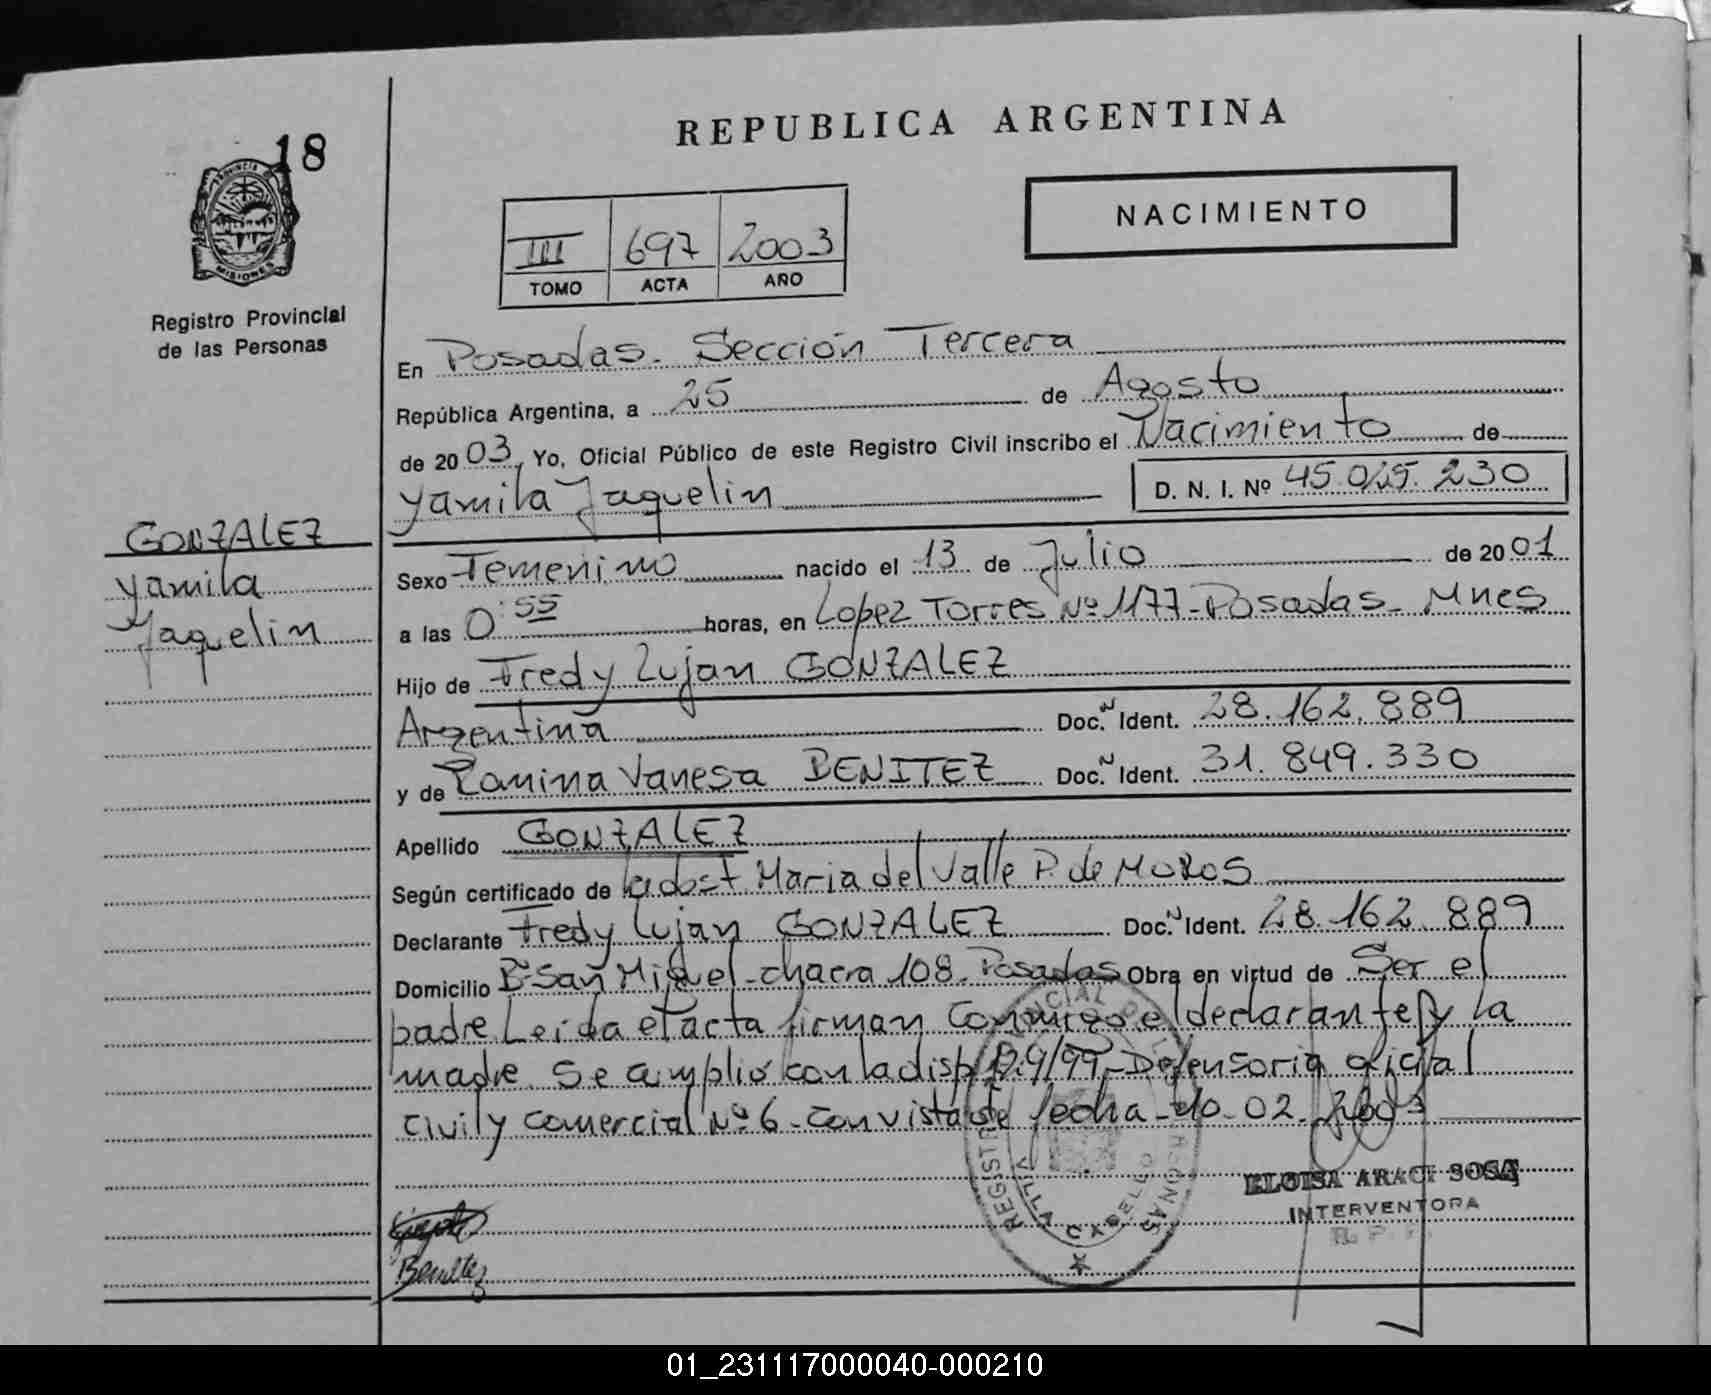 REPUBLICA ARGENTINA
18
PROVINCIA DE
MISIONES
NACIMIENTO
III 697 2003
TOMO ACTA AÑO
Registro Provincial
de las Personas
En Posadas. Sección Tercera
República Argentina, a 25 de Agosto
de 2003, Yo, Oficial Público de este Registro Civil inscribo el Nacimiento de
Yamila Jaquelin D. N. I. Nº 45.025.230
GONZALEZ
Yamila
Jaquelin
Sexo Femenino nacido el 13 de Julio de 2001
a las 0:55 horas, en Lopez Torres Nº 1177-Posadas-Mnes
Hijo de Fredy Lujan GONZALEZ
Argentina Doc. Ident. 28.162.889
y de Romina Vanesa BENITEZ Doc. Ident. 31.849.330
Apellido GONZALEZ
Según certificado de la obst Maria del Valle P. de MOROS
Declarante Fredy Lujan GONZALEZ Doc. Ident. 28.162.889
Domicilio Bº San Miguel-chacra 108. Posadas Obra en virtud de Ser el
padre Leida el acta firman Conmigo el declarante y la
madre. Se amplió con la disp. 9/99-Defensoria oficial
civil y comercial Nº 6-con vista de fecha-10-02-2003
ELOISA ARACI SOSA
INTERVENTORA
R. P. P.
VILLA CABELLO
Benitez
01_231117000040-000210